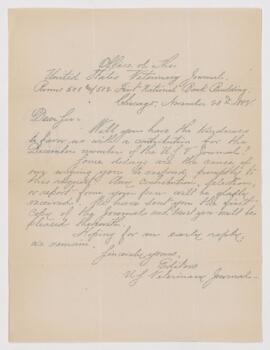 Office of The
United States Veterinary Journal.
Rooms 501 & 502 First National Bank Building.
Chicago, November 20th
Dear Sir:—
Will you have the kindness
to favor us with a contribution for the
December number of the U.S. Journal.
Some delays are the cause of
my asking you to respond promptly to
this request. Any contribution, selection,
or report from your pen will be gladly
received. We have sent you the first
copy of the Journal and trust you will be
pleased therewith.
Hoping for an early reply,
we remain.
Sincerely yours,
Editors
U.S. Veterinary Journal.